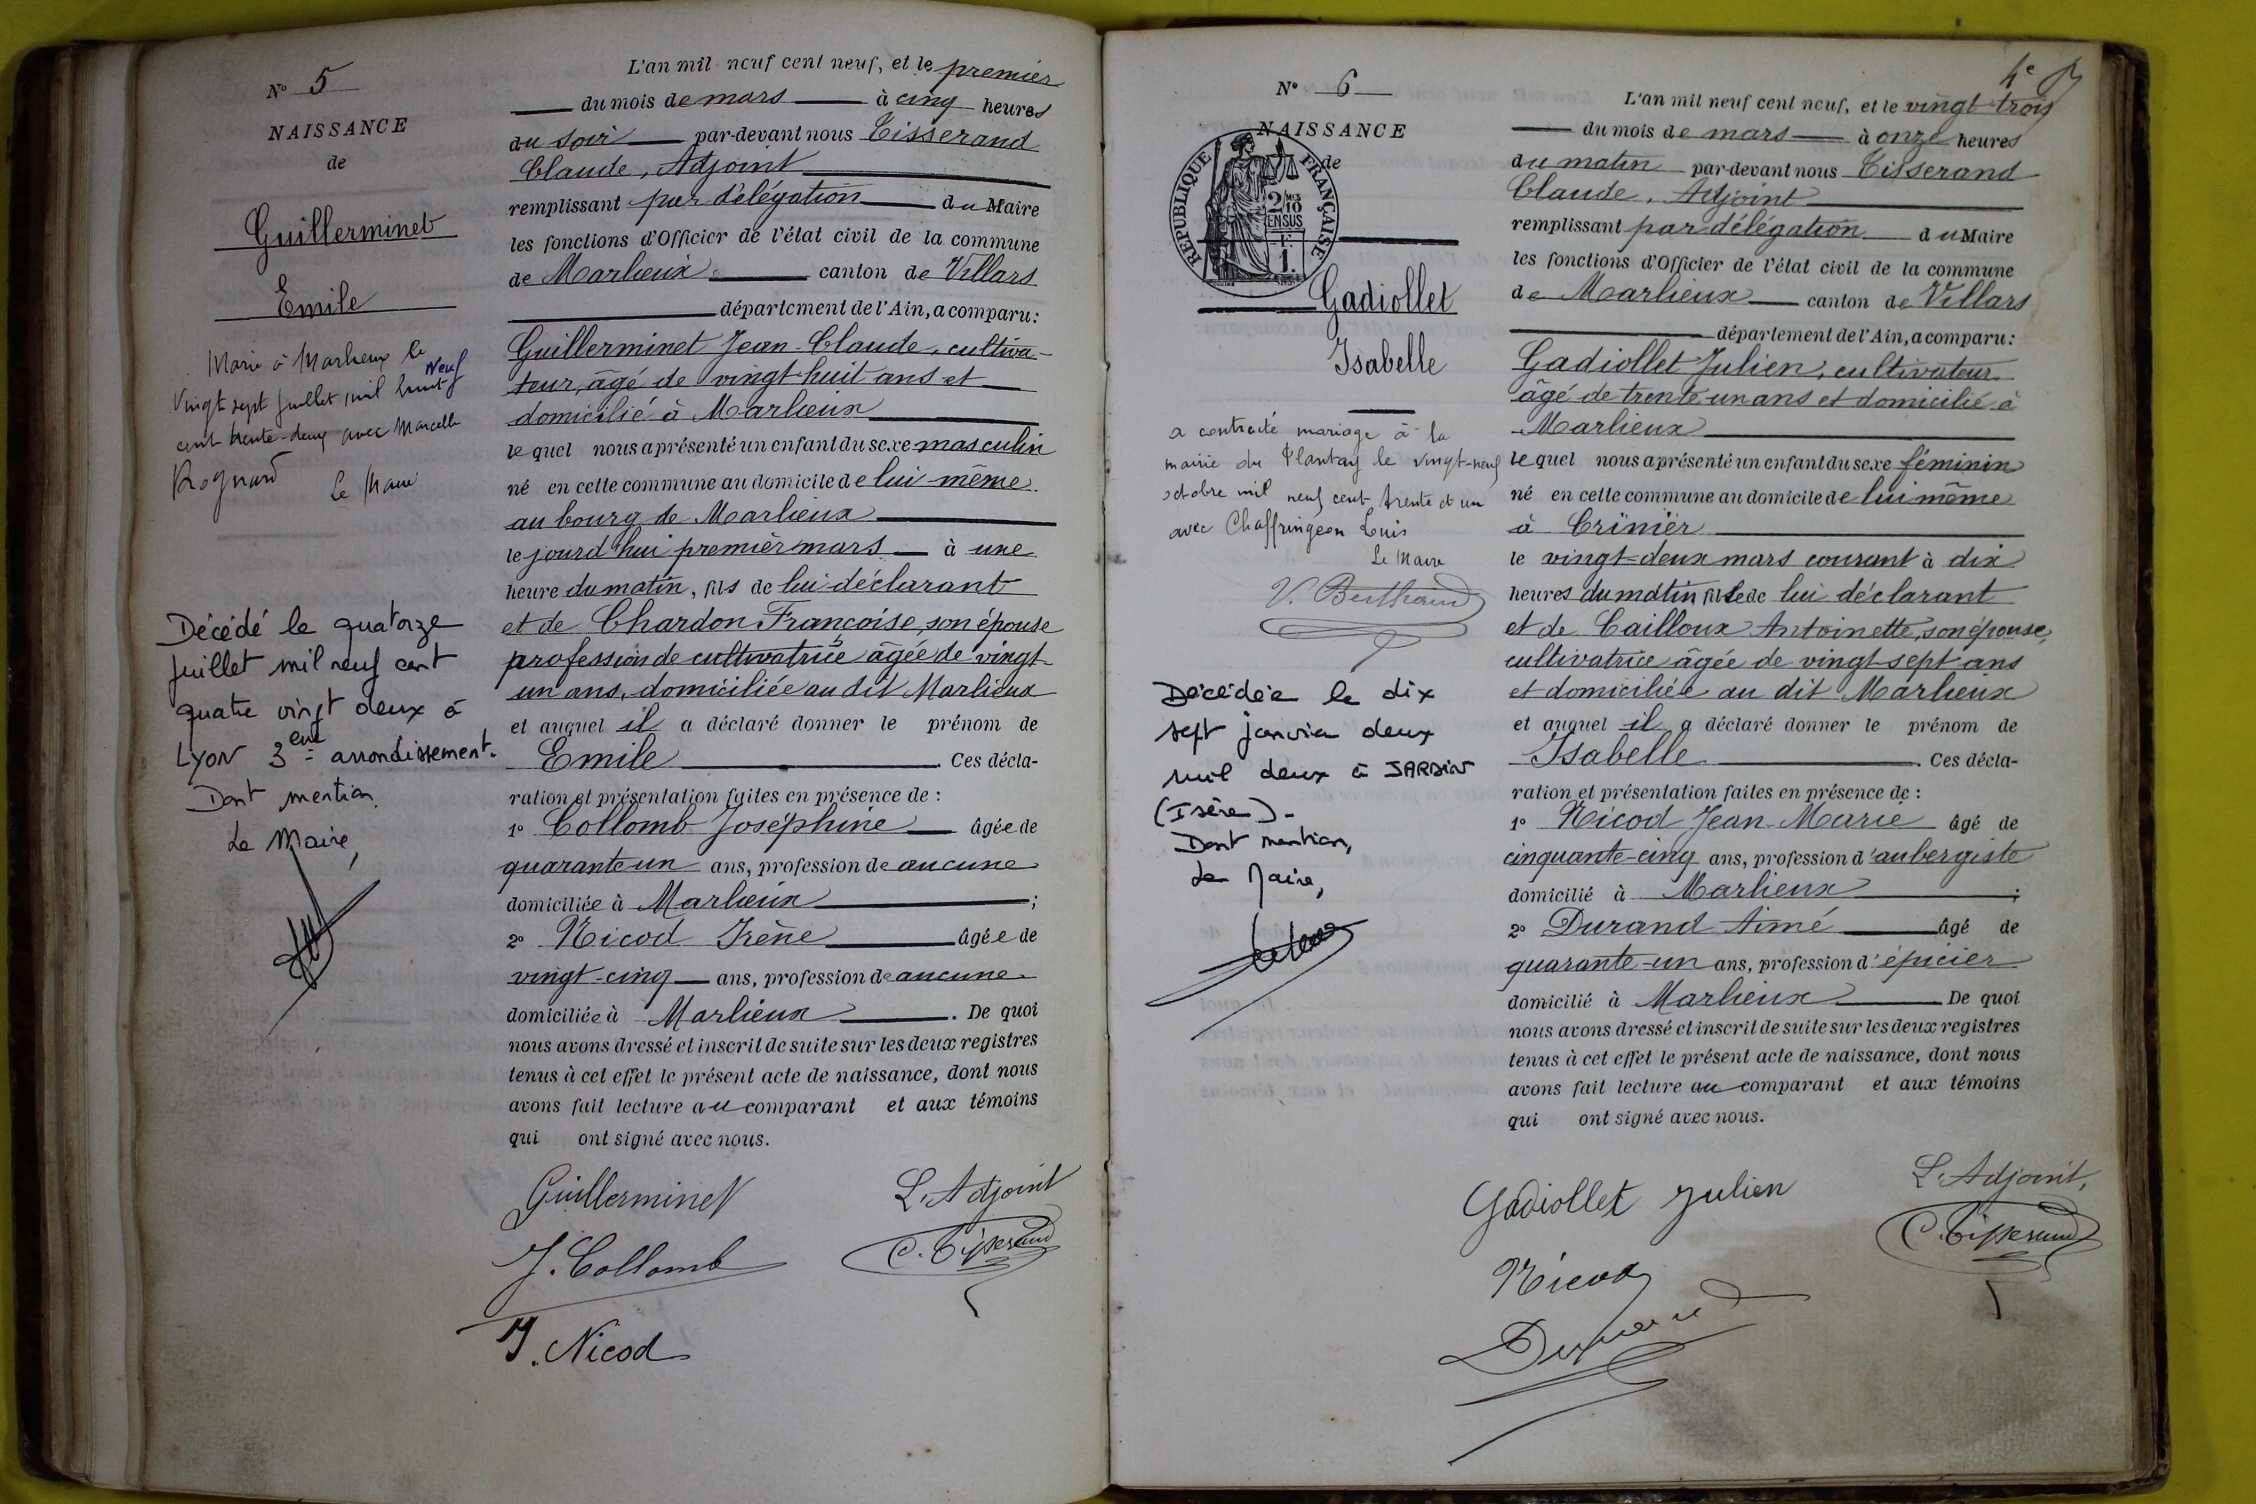 N° 5
NAISSANCE
de
Guillerminet
Emile
Marié à Marlieux le
Vingt sept juillet mil huit Neuf
cent trente-deux avec Marcelle
Le Maire
Décédé le quatorze
juillet mil neuf cent
quatre vingt deux à
Lyon 3eme arrondissement.
Dont mention
Le Maire,
L'an mil neuf cent neuf, et le premier
du mois de mars à cinq heures
du soir par-devant nous Tisserand
Claude, Adjoint
remplissant par délégation du Maire
les fonctions d'Officier de l'état civil de la commune
de Marlieux canton de Villars
département de l'Ain, a comparu:
Guillerminet Jean-Claude, cultiva-
teur, âgé de vingt-huit ans et
domicilié à Marlieux
le quel nous a présenté un enfant du sexe masculin
né en cette commune au domicile de lui-même
au bourg de Marlieux
le jourd'hui premier mars à une
heure du matin, fils de lui déclarant
et de Chardon Françoise, son épouse
profession de cultivatrice âgée de vingt
un ans, domiciliée au dit Marlieux
et auquel il a déclaré donner le prénom de
Emile . Ces décla-
ration et présentation faites en présence de :
1° Collomb Joséphine âgée de
quarante un ans, profession de aucune
domiciliée à Marlieux ;
2° Nicod Irène âgée de
vingt-cinq ans, profession de aucune
domiciliée à Marlieux . De quoi
nous avons dressé et inscrit de suite sur les deux registres
tenus à cet effet le présent acte de naissance, dont nous
avons fait lecture au comparant et aux témoins
qui ont signé avec nous.
Guillerminet L'Adjoint
J. Collomb C. Tisserand
I. Nicod
4e
N° 6
NAISSANCE
de
RÉPUBLIQUE FRANÇAISE
2/10 EN SUS
1 F.
Gadiollet
Isabelle
a contracté mariage à la
mairie du Plantay le vingt-neuf
octobre mil neuf cent trente et un
avec Chaffringeon Louis
Le Maire
V. Berthaud
Décédée le dix
sept janvier deux
mil deux à JARDIN
(Isère)-
Dont mention,
Le Maire,
L'an mil neuf cent neuf, et le vingt-trois
du mois de mars à onze heures
du matin par-devant nous Tisserand
Claude, Adjoint
remplissant par délégation du Maire
les fonctions d'Officier de l'état civil de la commune
de Marlieux canton de Villars
département de l'Ain, a comparu:
Gadiollet Julien, cultivateur
âgé de trente-un ans et domicilié à
Marlieux
le quel nous a présenté un enfant du sexe féminin
né en cette commune au domicile de lui même
à Crinier
le vingt-deux mars courant à dix
heures du matin fille de lui déclarant
et de Cailloux Antoinette, son épouse,
cultivatrice âgée de vingt-sept ans
et domiciliée au dit Marlieux
et auquel il a déclaré donner le prénom de
Isabelle . Ces décla-
ration et présentation faites en présence de :
1° Nicod Jean-Marie âgé de
cinquante-cinq ans, profession d'aubergiste
domicilié à Marlieux ;
2° Durand Aimé âgé de
quarante-un ans, profession d'épicier
domicilié à Marlieux De quoi
nous avons dressé et inscrit de suite sur les deux registres
tenus à cet effet le présent acte de naissance, dont nous
avons fait lecture au comparant et aux témoins
qui ont signé avec nous.
Gadiollet Julien L'Adjoint,
Nicod C. Tisserand
Durand